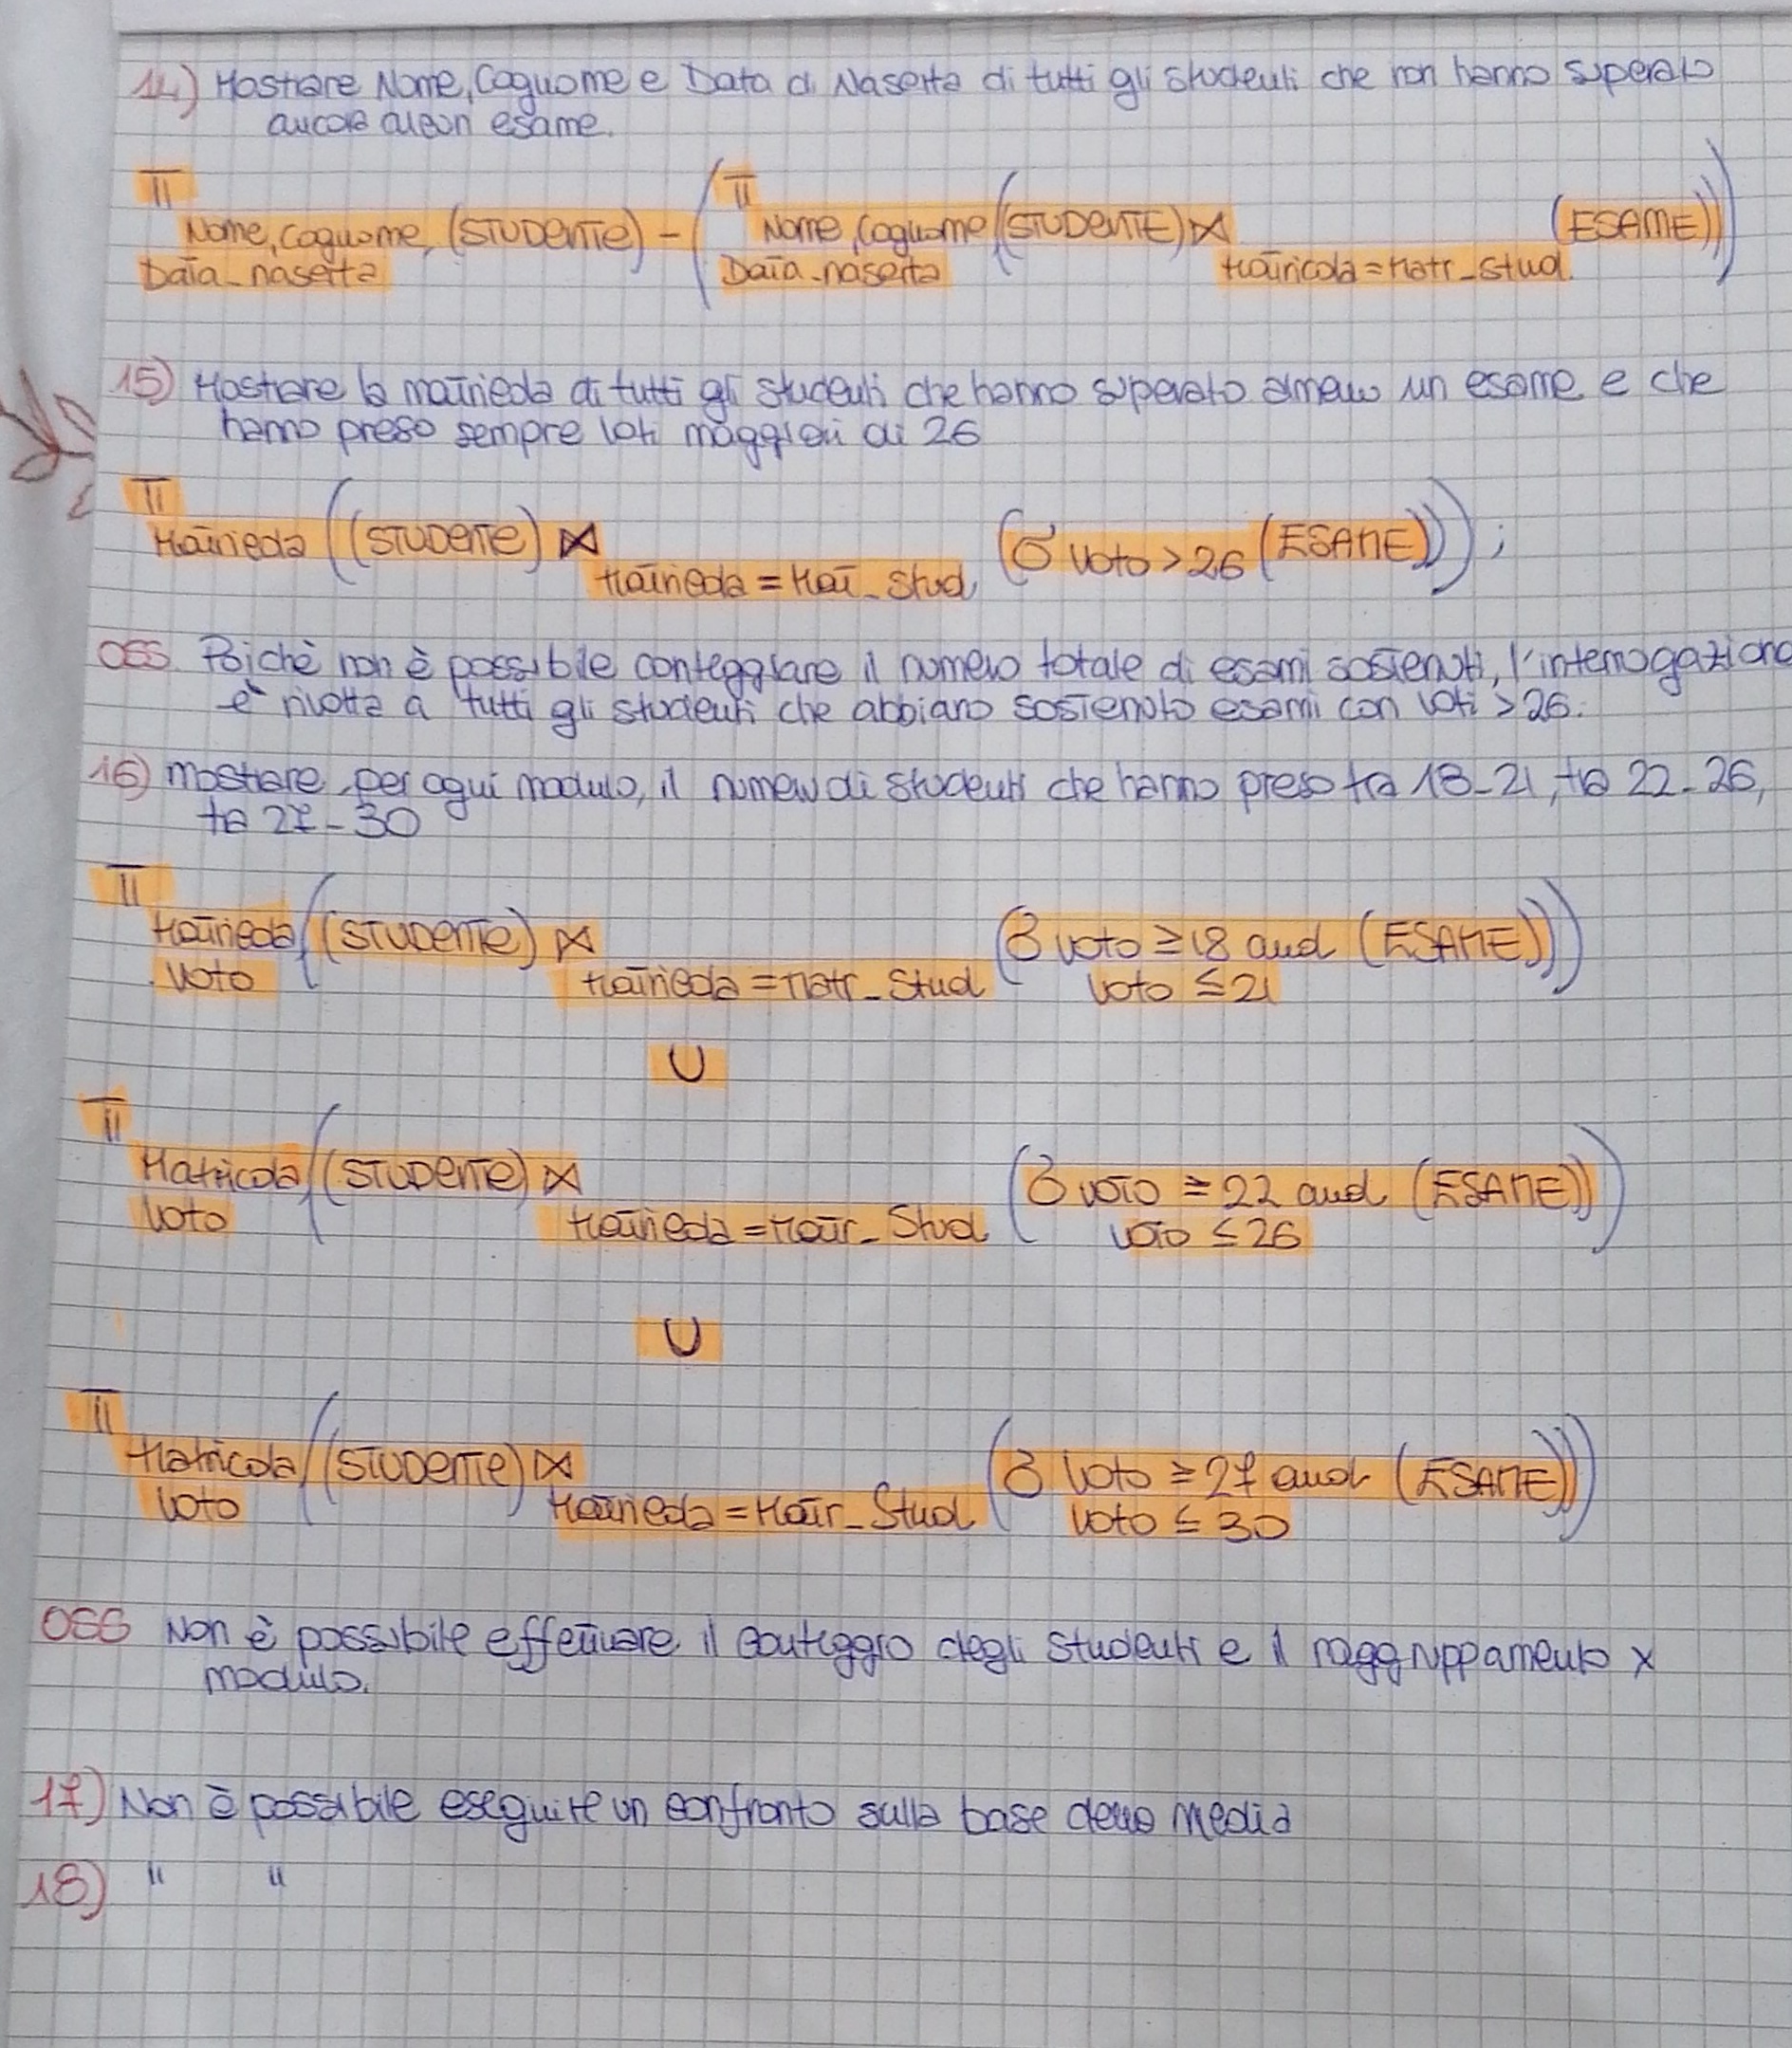 14) Mostrare Nome, Cognome e Data di Nascita di tutti gli studenti che non hanno superato
ancora alcun esame.
π Nome, Cognome, (STUDENTE) - (π Nome, Cognome ((STUDENTE) ⋈ (ESAME)))
Data_nascita Data_nascita matricola = matr_stud.
15) Mostrare la matricola di tutti gli studenti che hanno superato almeno un esame e che
hanno preso sempre voti maggiori di 26
π Matricola ((STUDENTE) ⋈ (σ voto > 26 (ESAME))) ;
matricola = Mat_Stud
OSS. Poichè non è possibile conteggiare il numero totale di esami sostenuti, l'interrogazione
è rivolta a tutti gli studenti che abbiano sostenuto esami con voti > 26.
16) mostrare, per ogni modulo, il numero di studenti che hanno preso tra 18-21, tra 22-26,
tra 27-30
π Matricola ((STUDENTE) ⋈ (σ voto ≥ 18 and (ESAME)))
voto matricola = matr_Stud voto ≤ 21
U
π Matricola ((STUDENTE) ⋈ (σ voto ≥ 22 and (ESAME)))
voto matricola = Matr_Stud voto ≤ 26
U
π Matricola ((STUDENTE) ⋈ (σ voto ≥ 27 and (ESAME)))
voto Matricola = Matr_Stud voto ≤ 30
OSS Non è possibile effettuare il conteggio degli studenti e il raggruppamento x
modulo.
17) Non è possibile eseguire un confronto sulla base della media
18) " "